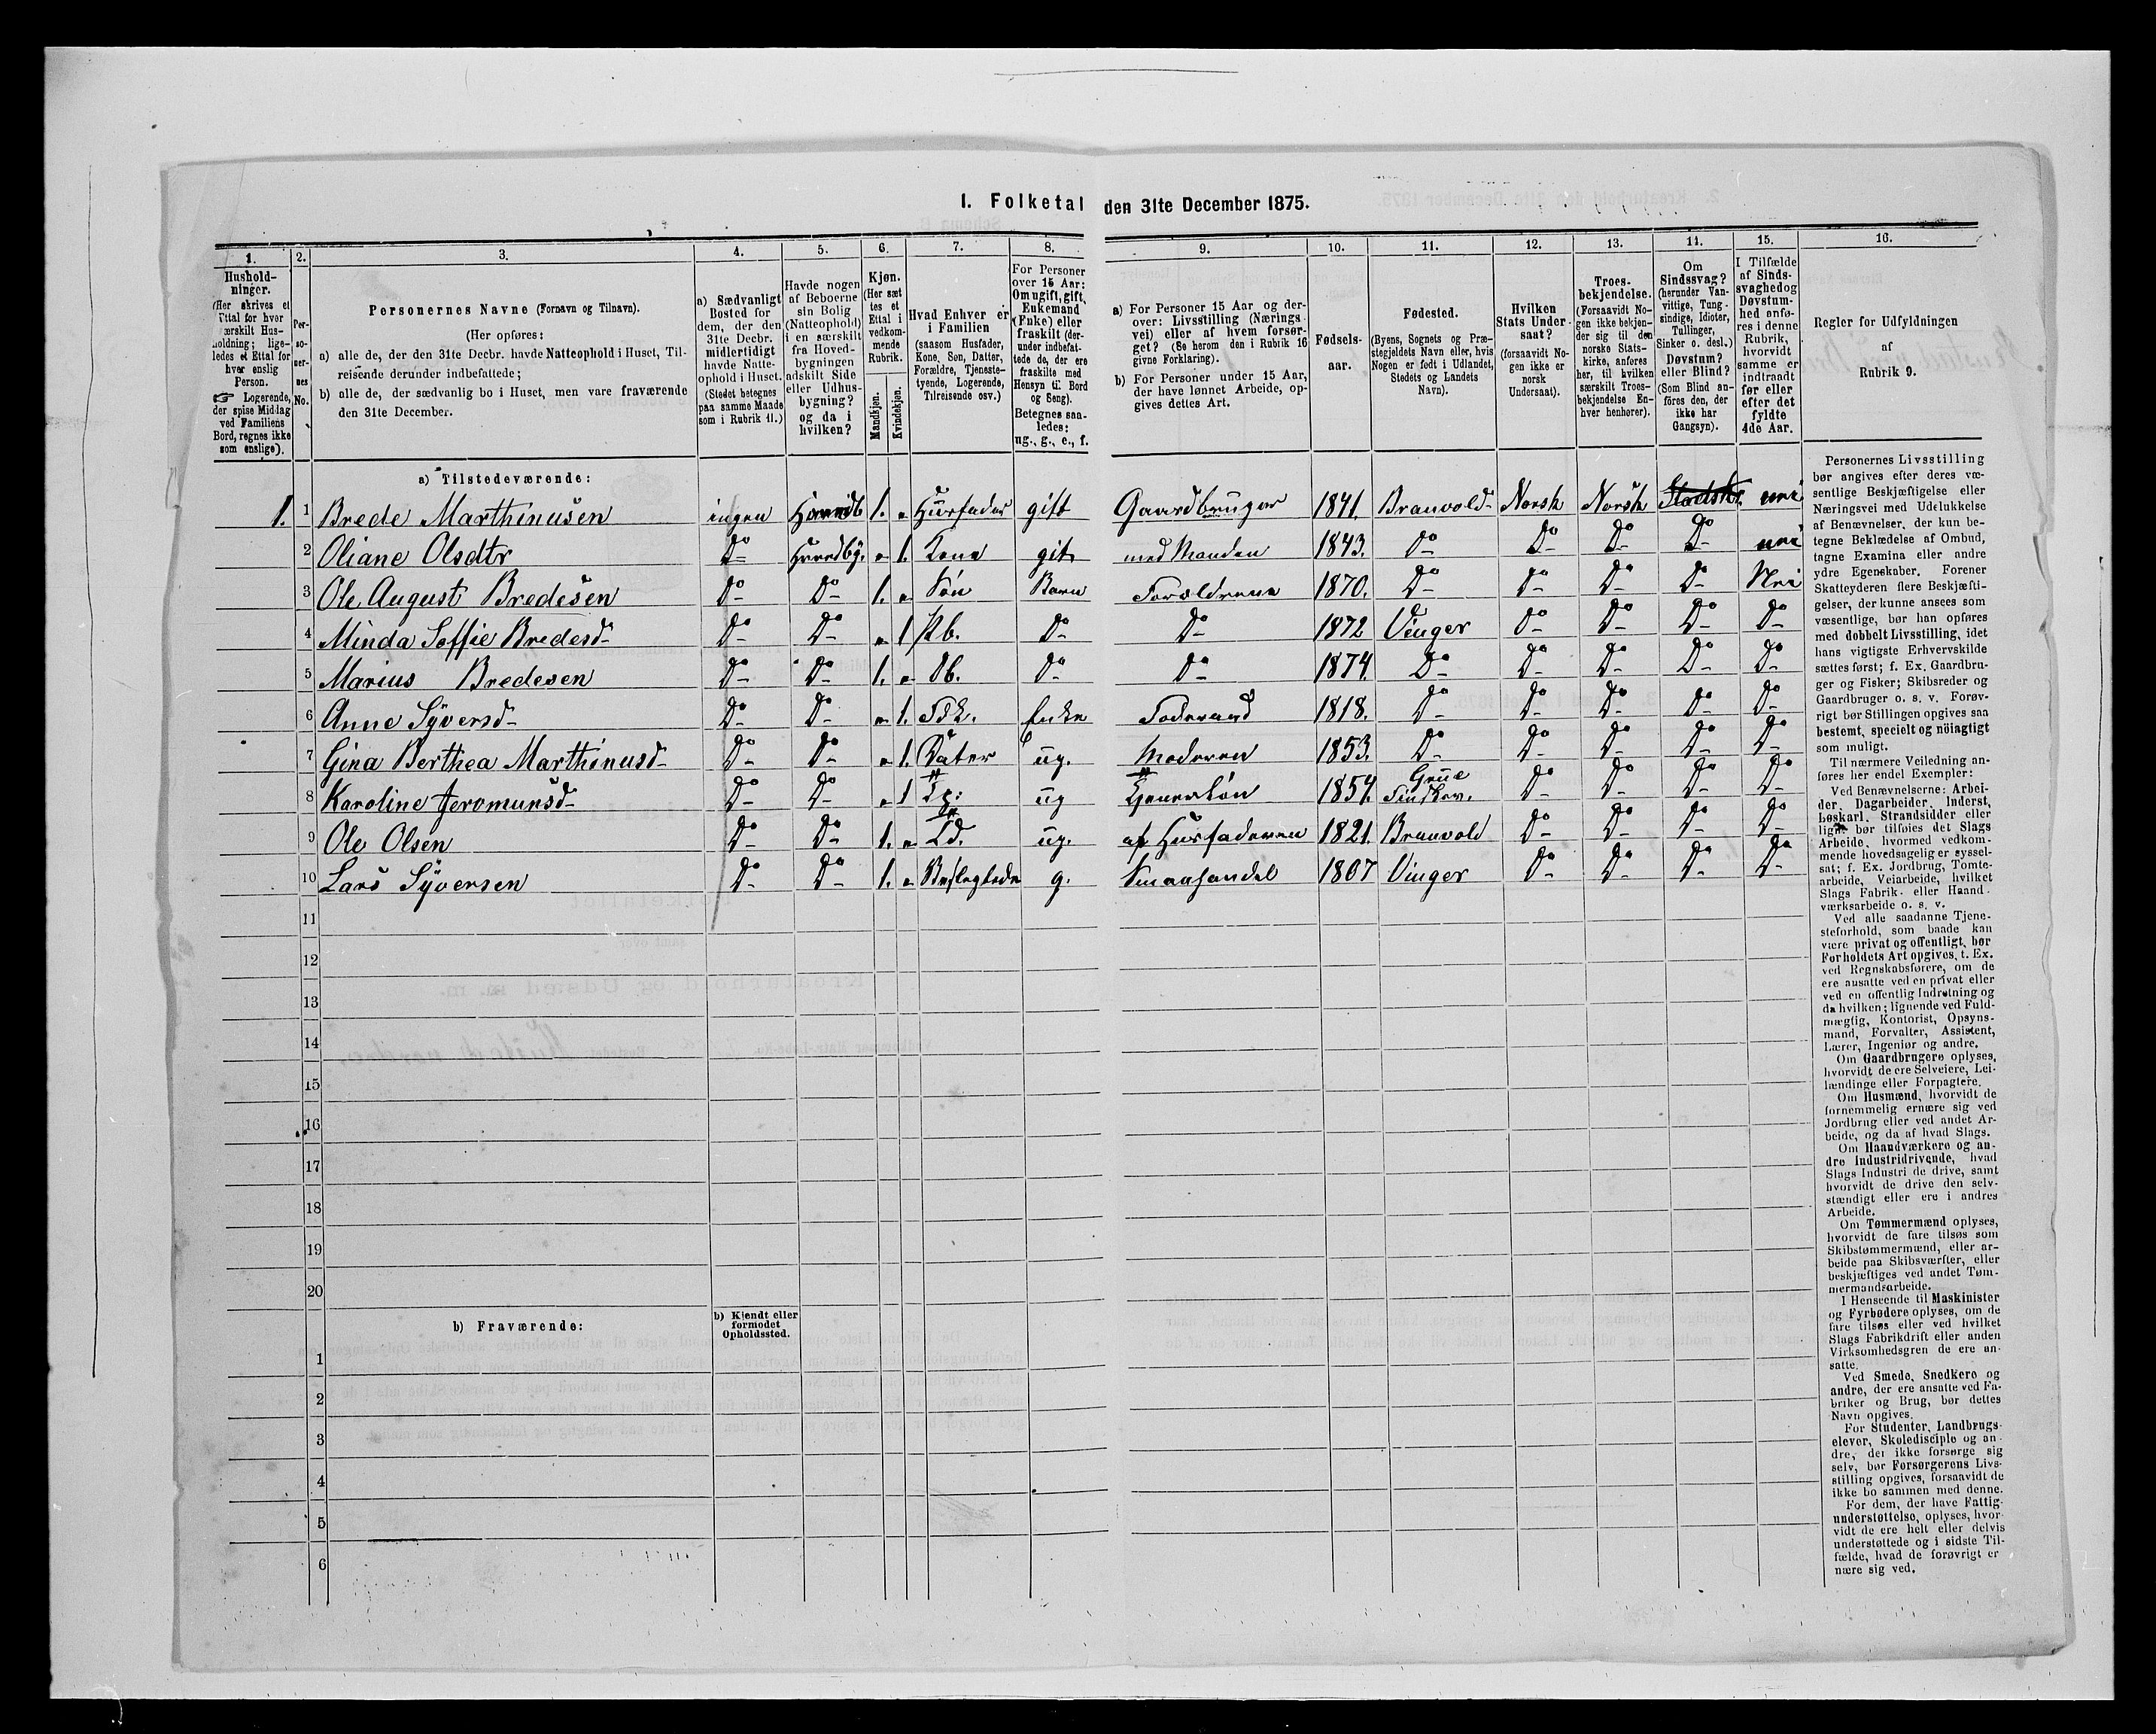 I. Folketal den 31te December 1875.
1. 2. 3. 4. 5. 6. 7. 8. 9. 10. 11. 12. 13. 14. 15. 16.
Hushold-
ninger.
(Her skrives et
Ettal for hver
særskilt Hus-
holdning; lige-
ledes et Ettal for
hver enslig
Person.
☞ Logerende,
der spise Middag
ved Familiens
Bord, regnes ikke
som enslige).
Per-
so-
ner-
nes
No.
Personernes Navne (Fornavn og Tilnavn).
(Her opføres:
a) alle de, der den 31te Decbr. havde Natteophold i Huset, Til-
reisende derunder indbefattede;
b) alle de, der sædvanlig bo i Huset, men vare fraværende
den 31te December.
a) Sædvanligt
Bosted for
dem, der den
31te Decbr.
midlertidigt
havde Natte-
ophold i Huset.
(Stedet betegnes
paa samme Maade
som i Rubrik 11.)
Havde nogen
af Beboerne
sin Bolig
(Natteophold)
i en særskilt
fra Hoved-
bygningen
adskilt Side
eller Udhus-
bygning?
og da i
hvilken?
Kjøn.
(Her sæt
tes et
Ettal i
vedkom-
mende
Rubrik.
Mandkjøn.
Kvindekjøn.
Hvad Enhver er
i Familien
(saasom Husfader,
Kone, Søn, Datter,
Forældre, Tjeneste-
tyende, Logerende,
Tilreisende osv.)
For Personer
over 15 Aar:
Om ugift, gift,
Enkemand
(Enke) eller
fraskilt (der-
under indbefat-
tede de, der ere
fraskilte med
Hensyn til Bord
og Seng).
Betegnes saa-
ledes:
ug., g., e., f.
a) For Personer 15 Aar og der-
over: Livsstilling (Nærings
vei) eller af hvem forsør-
get? (Se herom den i Rubrik 16
givne Forklaring).
b) For Personer under 15 Aar,
der have lønnet Arbeide, op-
gives dettes Art.
Fødsels-
aar.
Fødested.
(Byens, Sognets og Præ-
stegjeldets Navn eller, hvis
Nogen er født i Udlandet,
Stedets og Landets
Navn).
Hvilken
Stats Under-
saat?
(forsaavidt No-
gen ikke er
norsk
Undersaat).
Troes-
bekjendelse.
(Forsaavidt No-
gen ikke bekjen-
der sig til den
norske Stats-
kirke, anføres
her, til hvilken
særskilt Troes-
bekjendelse En-
hver henhører).
Om
Sindssvag?
(herunder Van-
vittige, Tung-
sindige, Idioter,
Tullinger,
Sinker o. desl.)
Døvstum?
eller Blind?
(Som Blind an-
føres den, der
ikke har
Gangsyn).
I Tilfælde
af Sinds-
svaghed og
Døvstum-
hed anfø-
res i denne
Rubrik,
hvorvidt
samme er
indtraadt
før eller
efter det
fyldte
4de Aar.
Regler for Udfyldningen
af
Rubrik 9.
a) Tilstedeværende:
1. 1 Brede Marthinusen ingen 1. Husfader gift Gaardbruger 1841. Branvold Norsk Norsk nei
2 Oliane Olsdtr Do 1. Kone gift med Manden 1843. Do Do Do Do nei
3 Ole August Bredesen Do Do 1. Søn Barn Forældrene 1870. Do Do Do Do Nei
4 Minda Soffie Bredesd Do Do 1 Do Do 1872 Vinger Do Do Do Do
5 Marius Bredesen Do Do 1. Do Do 1874. Do Do Do Do Do
6 Anne Syversd Do Do 1. Enke Foderaad 1818. Do Do Do Do Do
7 Gina Berthea Marthinusd Do Do 1. Dater ug. Moderen 1853. Do Do Do Do Do
8 Karoline Jermunsd Do Do 1 ug 1854. Grue Do Do Do Do
9 Ole Olsen Do Do 1. Ld. ug. af Husfaderen 1821. Branvold Do Do Do Do
10 Lars Syversen Do Do 1. Beslegtede g. Smaahandel 1807 Vinger Do Do Do Do
11
12
13
14
15
16
17
18
19
20
b) Fraværende:
b) Kjendt eller
formodet
Opholdssted.
1
2
3
4
5
6
Personernes Livsstilling
bør angives efter deres væ-
sentlige Beskjæftigelse eller
Næringsvei med Udelukkelse
af Benævnelser, der kun be-
tegne Beklædelse af Ombud,
tagne Examina eller andre
ydre Egenskaber. Forener
Skatteyderen flere Beskjæfti-
gelser, der kunne ansees som
væsentlige, bør han opføres
med dobbelt Livsstilling, idet
hans vigtigste Erhvervskilde
sættes først; f. Ex. Gaardbru-
ger og Fisker; Skibsreder og
Gaardbruger o. s. v. Forøv-
rigt bør Stillingen opgives saa
bestemt, specielt og nöiagtigt
som muligt.
Til nærmere Veiledning an-
føres her endel Exempler:
Ved Benævnelserne: Arbei-
der, Dagarbeider, Inderst,
Løskarl, Strandsidder eller
lign. bør tilføies det Slags
Arbeide, hvormed vedkom-
mende hovedsagelig er syssel-
sat; f. Ex. Jordbrug, Tomte-
arbeide, Veiarbeide, hvilket
Slags Fabrik- eller Haand-
værksarbeide o. s. v.
Ved alle saadanne Tjene-
steforhold, som baade kan
være privat og offentligt, bør
Forholdets Art opgives, t. Ex.
ved Regnskabsførere, om de
ere ansatte ved en privat eller
ved en offentlig Indretning og
da hvilken; lignende ved Fuld-
mægtig, Kontorist, Opsyns-
mand, Forvalter, Assistent,
Lærer, Ingeniør og andre.
Om Gaardbrugere oplyses,
hvorvidt de ere Selveiere, Lei-
lændinge eller Forpagtere.
Om Husmænd, hvorvidt de
fornemmelig ernære sig ved
Jordbrug eller ved andet Ar-
beide, og da af hvad Slags.
Om Haandværkere og an-
dre Industridrivende, hvad
Slags Industri de drive, samt
hvorvidt de drive den selv-
stændigt eller ere i andres
Arbeide.
Om Tømmermænd oplyses,
hvorvidt de fare tilsøs som
Skibstømmermænd, eller ar-
beide paa Skibsværfter, eller
beskjæftiges ved andet Tøm-
mermandsarbeide.
I Henseende til Maskinister
og Fyrbødere oplyses, om de
fare tilsøs eller ved hvilket
Slags Fabrikdrift eller anden
Virksomhedsgren de ere an-
satte.
Ved Smede, Snedkere og
andre, der ere ansatte ved Fa-
briker og Brug, bør dettes
Navn opgives.
For Studenter, Landbrugs-
elever, Skoledisciple og an-
dre, der ikke forsørge sig
selv, bør Forsørgerens Livs-
stilling opgives, forsaavidt de
ikke bo sammen med denne.
For dem, der have Fattig-
understøttelse, oplyses, hvor-
vidt de ere helt eller delvis
understøttede og i sidste Til-
fælde, hvad de forøvrigt er
nære sig ved.